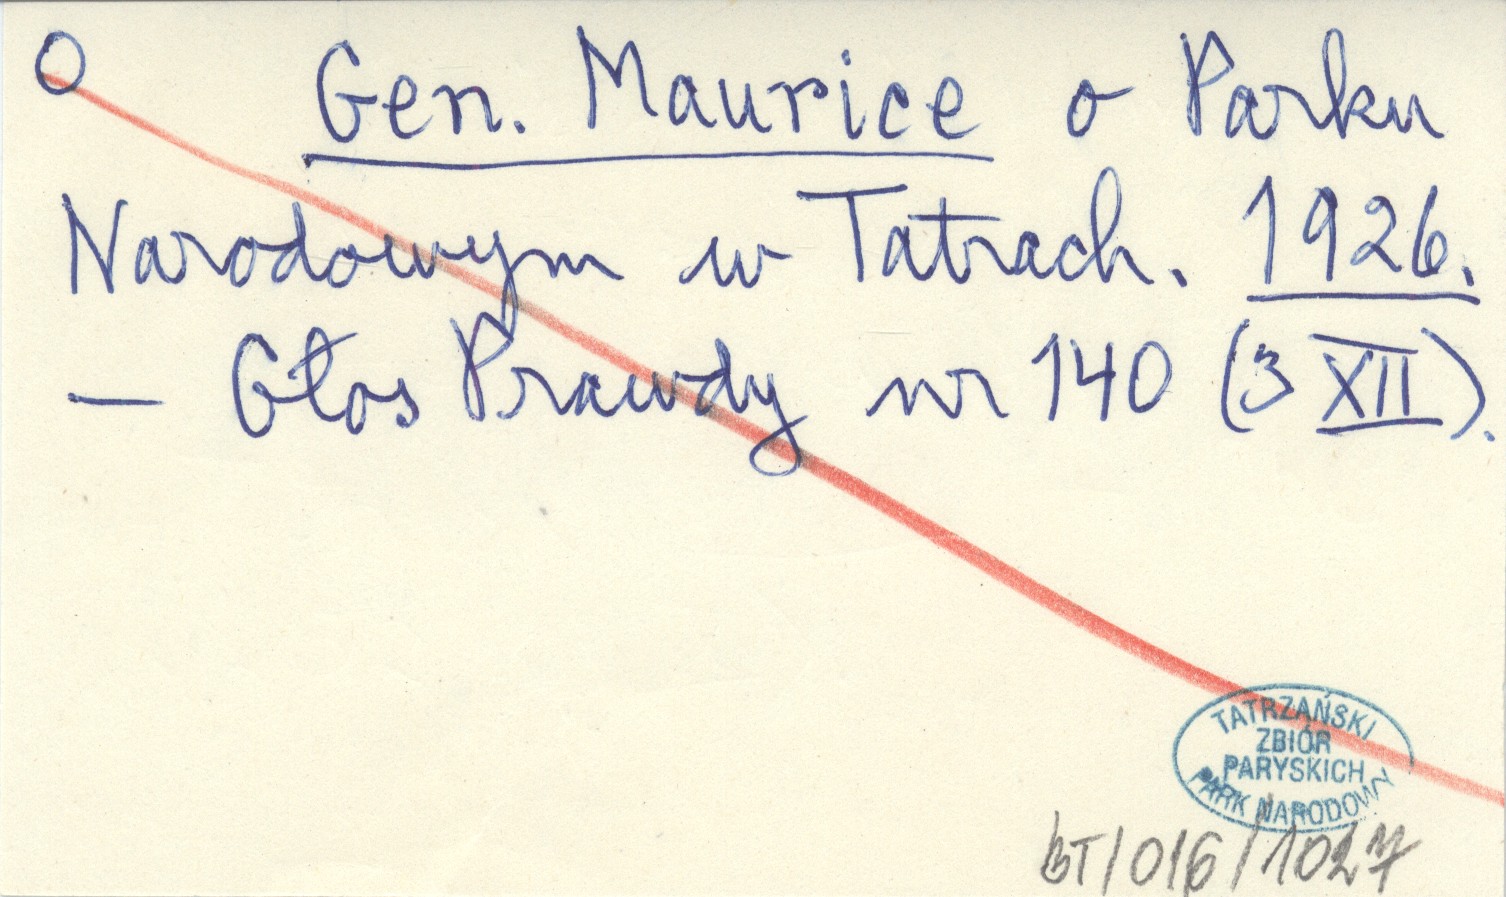 O Gen. Maurice o Parku
Narodowym w Tatrach. 1926.
— Głos Prawdy nr 140 (3 XII).
TATRZAŃSKI
ZBIÓR
PARYSKICH
PARK NARODOWY
BT/016/1027